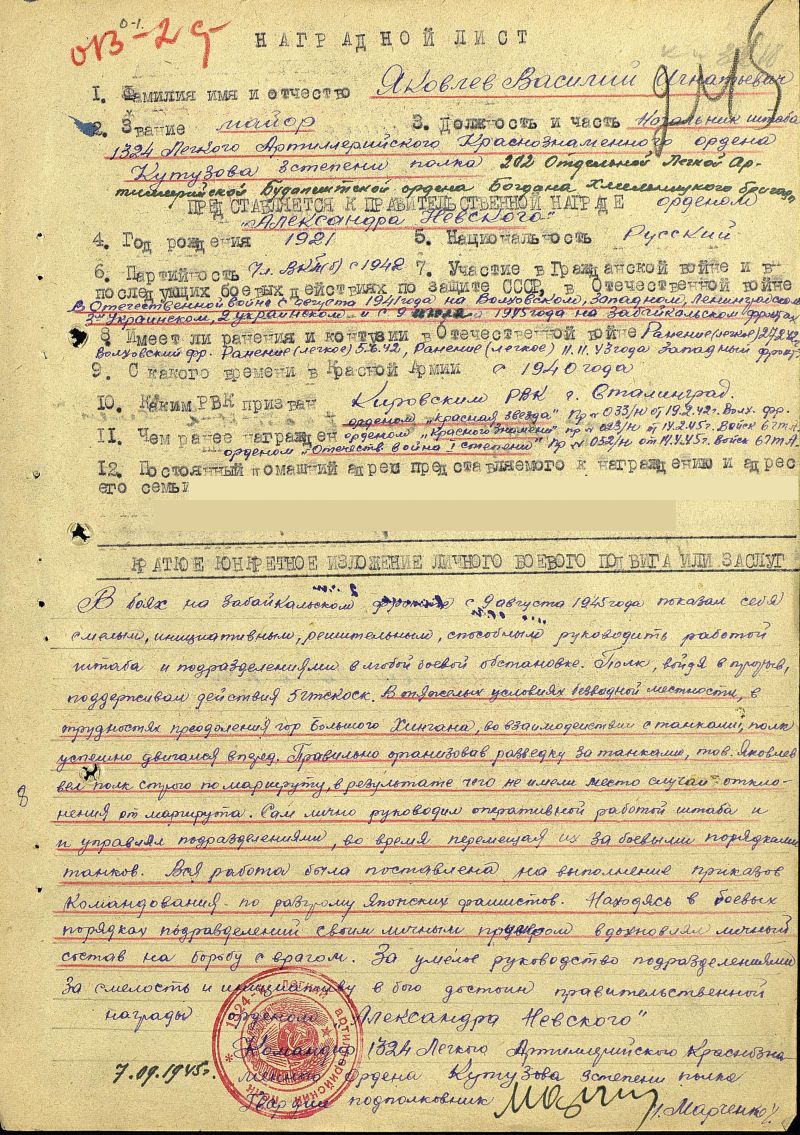 0-1.
ОВ-29
НАГРАДНОЙ ЛИСТ
1. Фамилия имя и отчество Яковлев Василий Игнатьевич
2. Звание майор 3. Должность и часть Начальник штаба
1324 Легкого Артиллерийского Краснознаменного ордена
Кутузова 3 степени полка 202 Отдельной Легкой Ар-
тиллерийской Будапештской ордена Богдана Хмельницкого бригады
ПРЕДСТАВЛЯЕТСЯ К ПРАВИТЕЛЬСТВЕННОЙ НАГРАДЕ орденом
"Александра Невского"
4. Год рождения 1921 5. Национальность Русский
6. Партийность Чл. ВКП(б) с 1942 7. Участие в Гражданской войне и в
последующих боевых действиях по защите СССР, в Отечественной войне
В Отечественной войне с августа 1941 года на Волховском, Западном, Ленинградском
3м Украинском, 2 украинском и с 9 1945 года на Забайкальском фронтах
8 Имеет ли ранения и контузии в Отечественной войне Ранение (легкое) 27.2.42
Волховский фр. Ранение (легкое) 5.6.42, Ранение (легкое) 11.11.43 года Западный фронт
9. С какого времени в Красной Армии с 1940 года
10. Каким РВК призван Кировским РВК г. Сталинград.
орденом "Красная звезда" Пр № 033/н от 19.2.42г. Волх. фр.
11. Чем ранее награжден орденом "Красного знамени" пр № 023/н от 14.2.45г. Войск 6 г.т.А.
орденом "Отечеств. война I степени" Пр № 052/н от 14.4.45г. Войск 6 г.т.А.
12. Постоянный домашний адрес представляемого к награждению и адрес
его семьи
КРАТКОЕ КОНКРЕТНОЕ ИЗЛОЖЕНИЕ ЛИЧНОГО БОЕВОГО ПОДВИГА ИЛИ ЗАСЛУГ
В боях на Забайкальском фронте с 9 августа 1945 года показал себя
смелым, инициативным, решительным, способным руководить работой
штаба и подразделениями в любой боевой обстановке. Полк, войдя в прорыв,
поддерживал действия 5 гткск. В тяжелых условиях безводной местности, в
трудностях преодоления гор Большого Хингана, во взаимодействии с танками, полк
успешно двигался вперед. Правильно организовав разведку за танками, тов. Яковлев
вел полк строго по маршруту, в результате чего не имели место случаи откло-
нения от маршрута. Сам лично руководил оперативной работой штаба и
и управлял подразделениями, во время перемещая их за боевыми порядками
танков. Вся работа была поставлена на выполнение приказов
Командования - по разгрому Японских фашистов. Находясь в боевых
порядках подразделений своим личным примером вдохновлял личный
состав на борьбу с врагом. За умелое руководство подразделениями
За смелость и инициативу в бою достоин правительственной
награды орденом "Александра Невского"
Командир 1324 Легкого Артиллерийского Краснозна-
7.09.1945г. менного Ордена Кутузова 3 степени полка
Гвардии подполковник /Марченко/
8
1324-й легкий артиллерийский полк